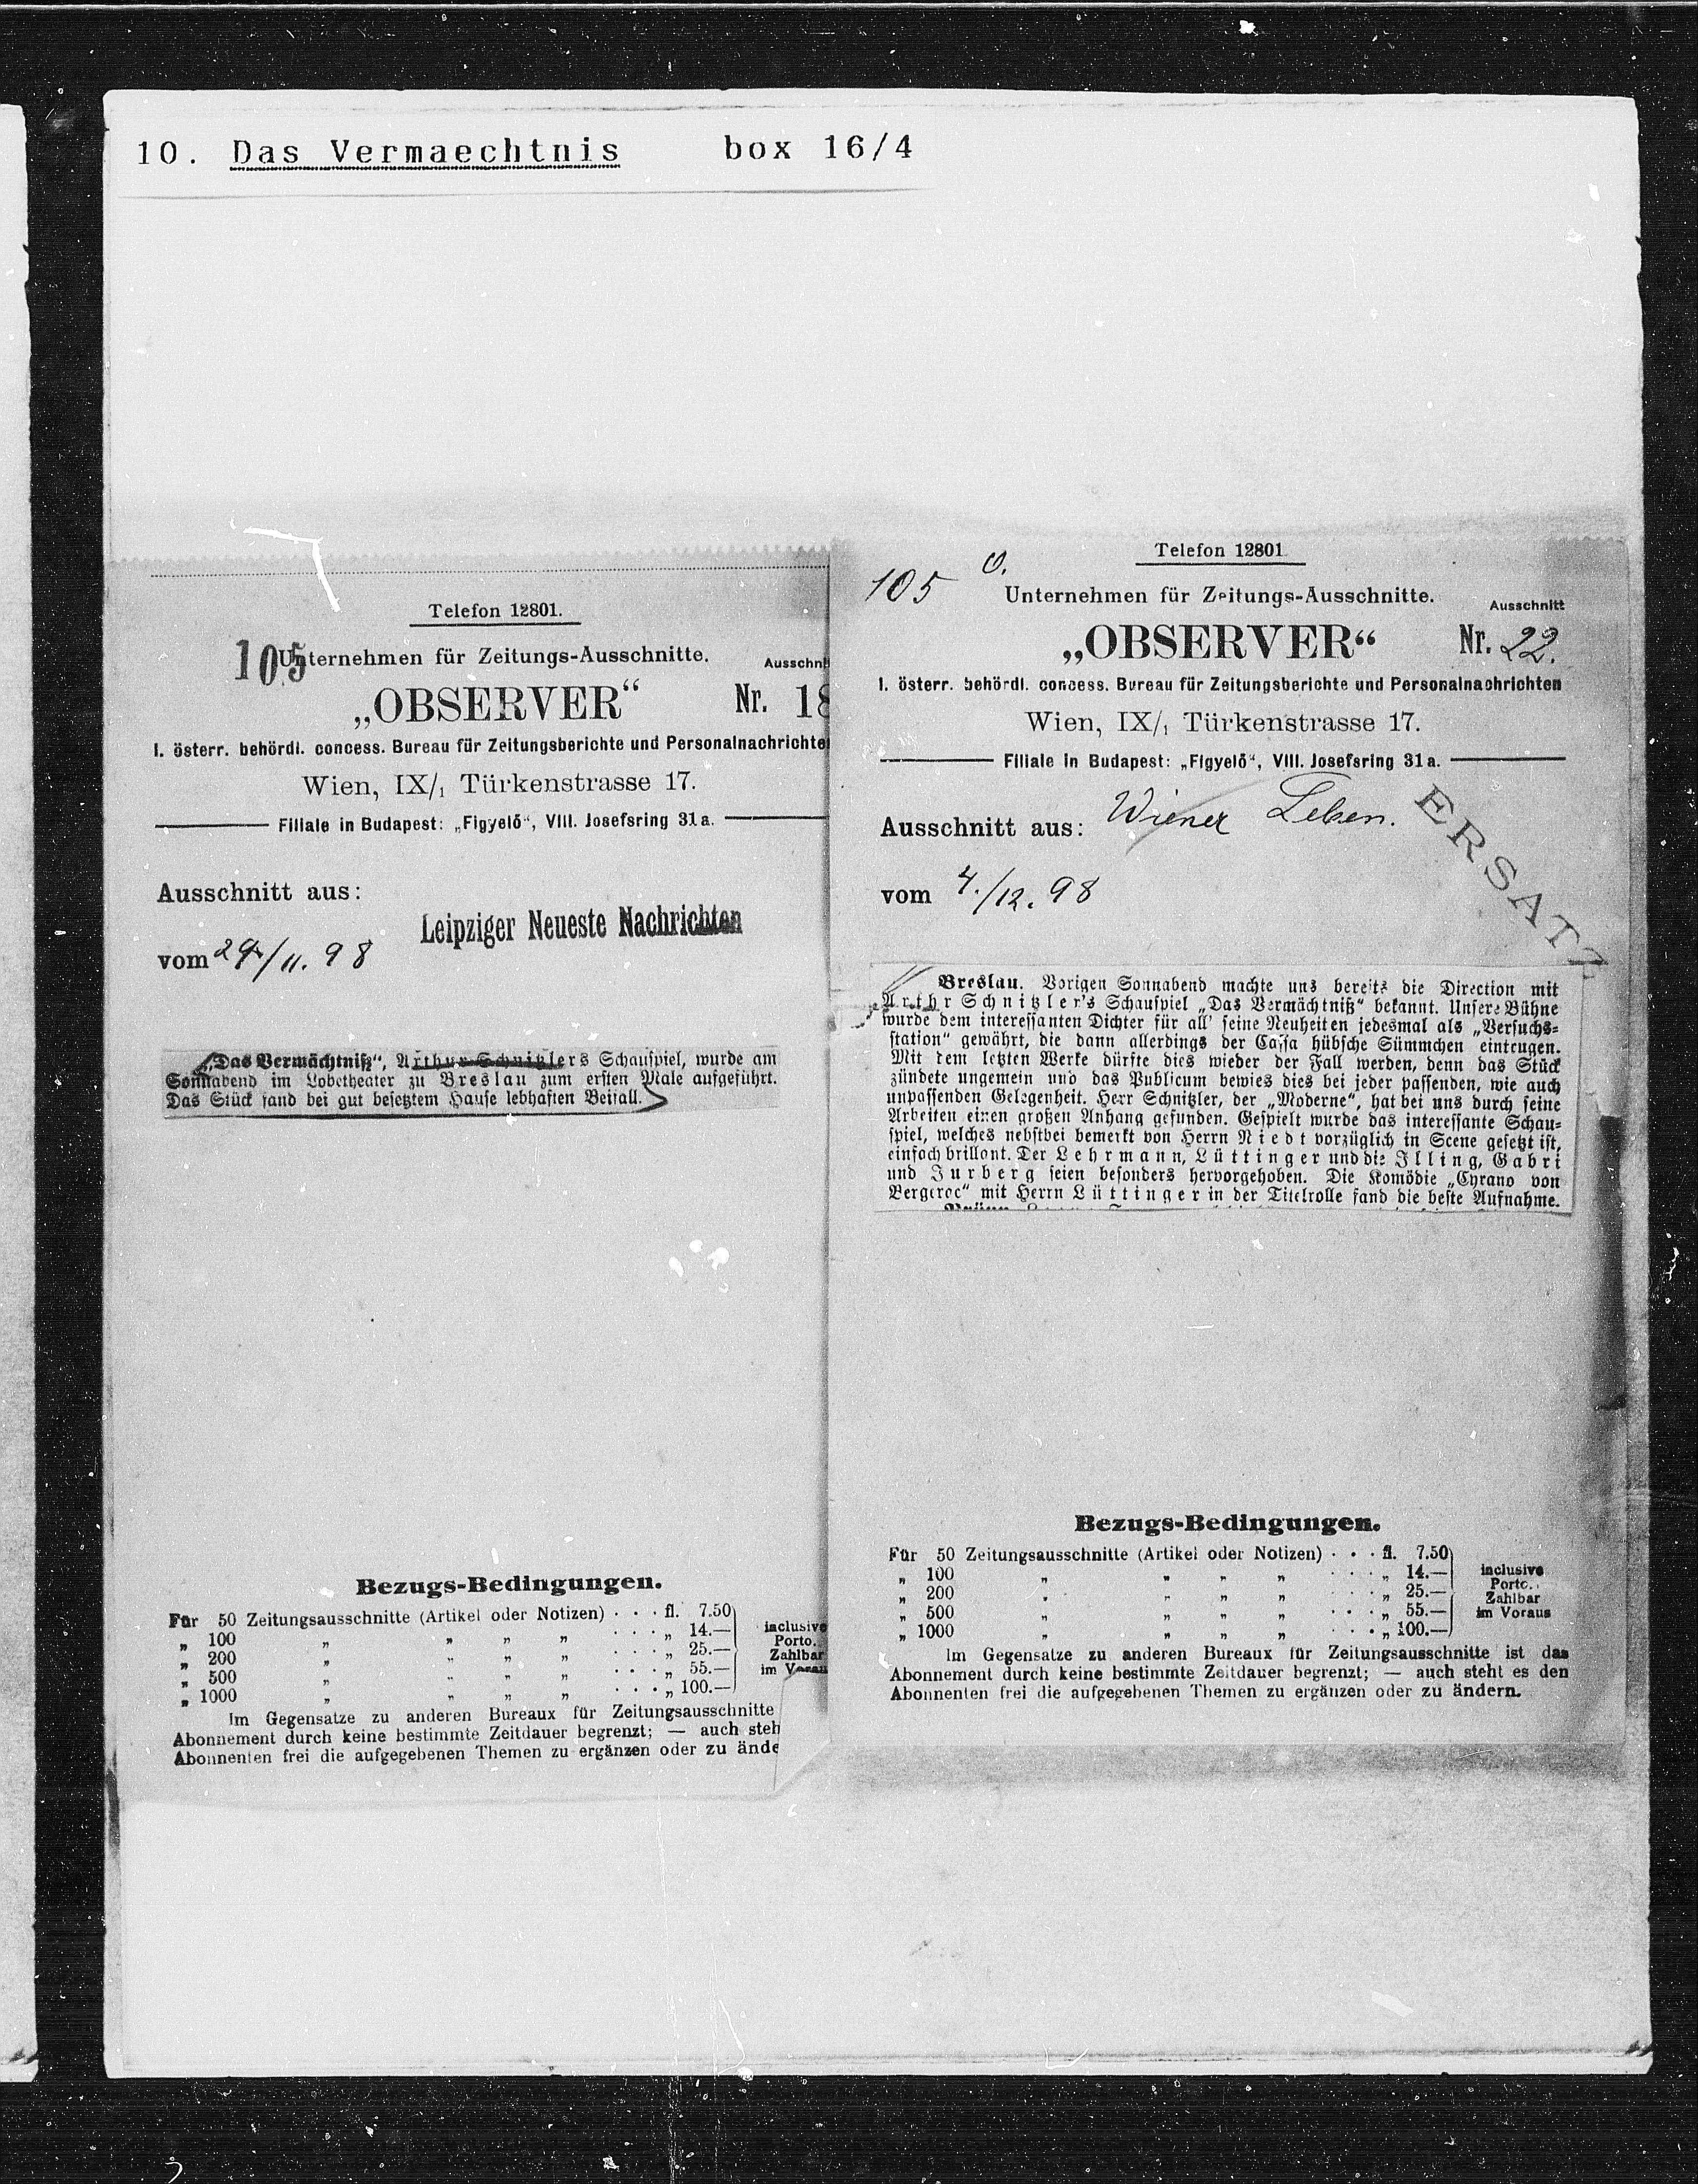 10. Das Vermaechtnis box 16/4
Telefon 12801.
105
Unternehmen für Zeitungs-Ausschnitte.
Ausschni
„OBSERVER“ Nr. 18
I. österr. behördl. concess. Bureau für Zeitungsberichte und Personalnachrichte
Wien, IX/1 Türkenstrasse 17.
Filiale in Budapest: „Figyelő“, VIII. Josefsring 31a.
Ausschnitt aus:
Leipziger Neueste Nachrichten
vom 29/11. 98
„Das Vermächtniß“, Arthur Schnitzlers Schauspiel, wurde am
Sonnabend im Lobetheater zu Breslau zum ersten Male aufgeführt.
Das Stück fand bei gut besetztem Hause lebhaften Beifall.
Bezugs-Bedingungen.
Für 50 Zeitungsausschnitte (Artikel oder Notizen) . . . fl. 7.50
„ 100 „ „ „ „ . . . „ 14.—
„ 200 „ „ „ „ . . . „ 25.—
„ 500 „ „ „ „ . . . „ 55.—
„ 1000 „ „ „ „ . . . „ 100.—
inclusive
Porto.
Zahlbar
im Voraus
Im Gegensatze zu anderen Bureaux für Zeitungsausschnitte
Abonnement durch keine bestimmte Zeitdauer begrenzt; — auch steh
Abonnenten frei die aufgegebenen Themen zu ergänzen oder zu ände
Telefon 12801
105 O.
Unternehmen für Zeitungs-Ausschnitte.
Ausschnitt
„OBSERVER“ Nr. 22.
I. österr. behördl. concess. Bureau für Zeitungsberichte und Personalnachrichten
Wien, IX/1 Türkenstrasse 17.
Filiale in Budapest: „Figyelő“, VIII. Josefsring 31a.
Ausschnitt aus: Wiener Leben.
ERSATZ
vom 4./12. 98
Breslau. Vorigen Sonnabend machte uns bereits die Direction mit
Arthr Schnitzler's Schauspiel „Das Vermächtniß“ bekannt. Unsere Bühne
wurde dem interessanten Dichter für all' seine Neuheiten jedesmal als „Versuchs=
station“ gewährt, die dann allerdings der Cassa hübsche Sümmchen eintrugen.
Mit dem letzten Werke dürfte dies wieder der Fall werden, denn das Stück
zündete ungemein und das Publicum bewies dies bei jeder passenden, wie auch
unpassenden Gelegenheit. Herr Schnitzler, der „Moderne“, hat bei uns durch seine
Arbeiten einen großen Anhang gefunden. Gespielt wurde das interessante Schau=
spiel, welches nebstbei bemerkt von Herrn Niedt vorzüglich in Scene gesetzt ist,
einfach brillant. Der Lehrmann, Lüttinger und die Illing, Gabri
und Jurberg seien besonders hervorgehoben. Die Komödie „Cyrano von
Bergerac“ mit Herrn Lüttinger in der Titelrolle fand die beste Aufnahme.
Bezugs-Bedingungen.
Für 50 Zeitungsausschnitte (Artikel oder Notizen) . . . fl. 7.50
„ 100 „ „ „ „ . . . „ 14.—
„ 200 „ „ „ „ . . . „ 25.—
„ 500 „ „ „ „ . . . „ 55.—
„ 1000 „ „ „ „ . . . „ 100.—
inclusive
Porto.
Zahlbar
im Voraus
Im Gegensatze zu anderen Bureaux für Zeitungsausschnitte ist das
Abonnement durch keine bestimmte Zeitdauer begrenzt; — auch steht es den
Abonnenten frei die aufgegebenen Themen zu ergänzen oder zu ändern.